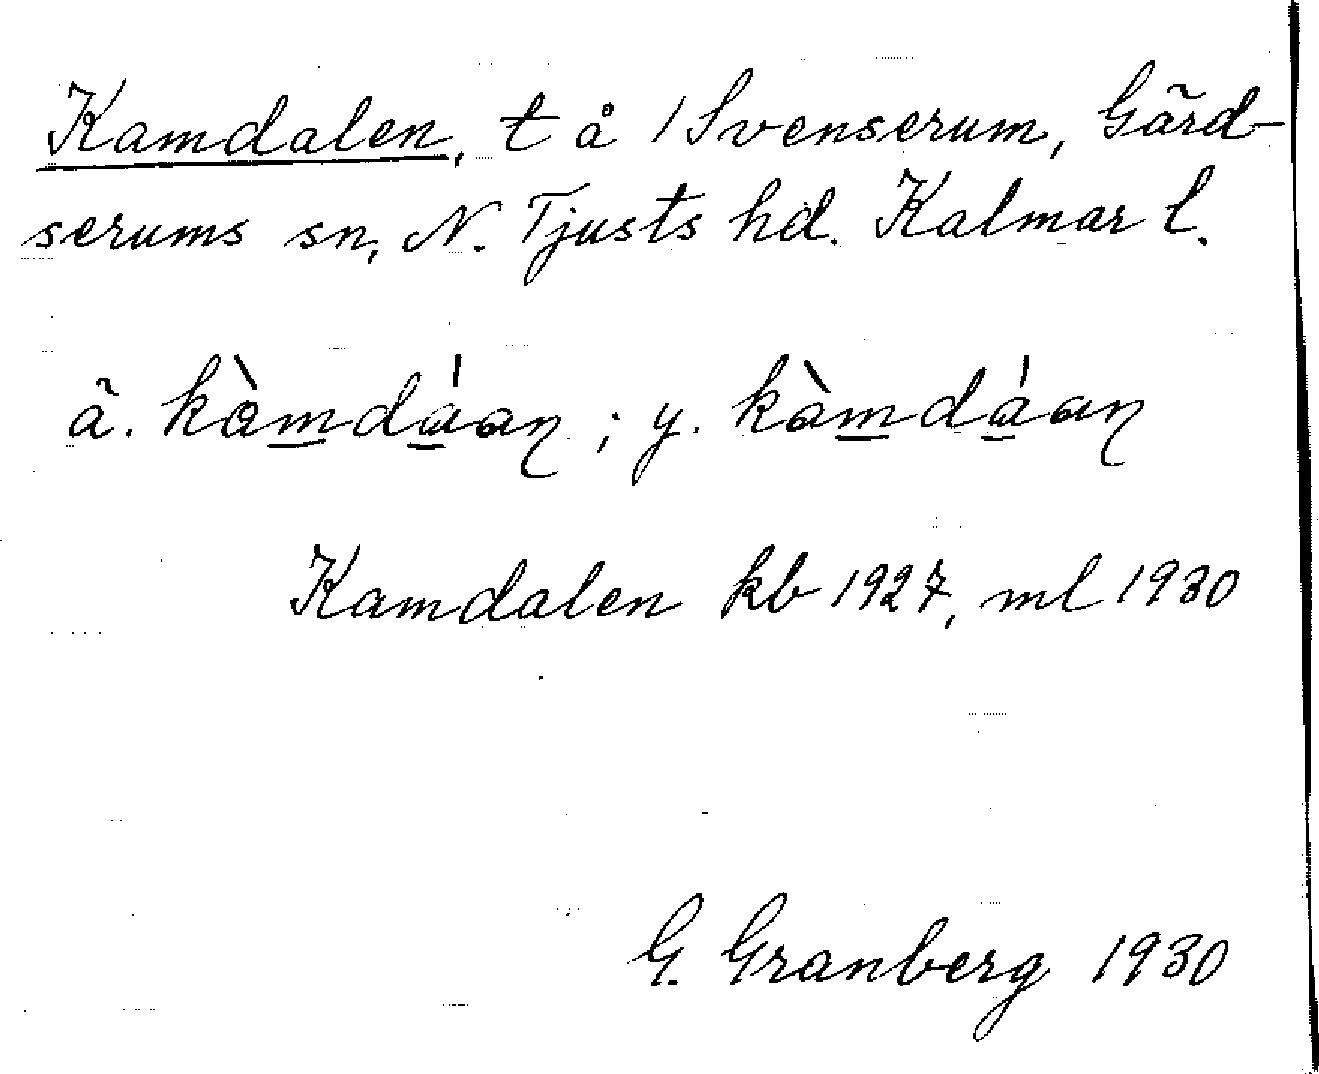 Kamdalen, t å 1 Svenserum, Gärd-
serums sn, N. Tjusts hd. Kalmar l.
ä. kòmdáan; y. kàmdáan
Kamdalen kb 1927, ml 1930
G. Granberg 1930